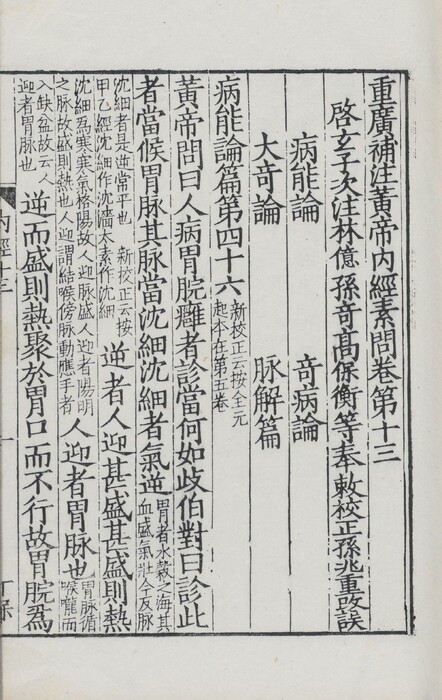 重廣補注黃帝內經素問卷第十三
啓玄子次注林億孫竒高保衡等奉敕校正孫兆重改誤
病能論 竒病論
大竒論 脉解篇
病能論篇第四十六 新校正云按全元
起本在第五卷
黃帝問曰人病胃脘癰者診當何如歧伯對曰診此
者當候胃脉其脉當沈細沈細者氣逆 胃者水穀之海其
血盛氣壯今反脉
沈細者是逆常平也 新校正云按
甲乙經沈細作沈濇太素作沈細
逆者人迎甚盛甚盛則熱
沈細爲寒寒氣格陽故人迎脉盛人迎者陽明
之脉故盛則熱也人迎謂結喉傍脉動應手者
人迎者胃脉也 胃脉循
喉嚨而
入缺盆故云人
迎者胃脉也
逆而盛則熱聚於胃口而不行故胃脘爲
內經十三
一